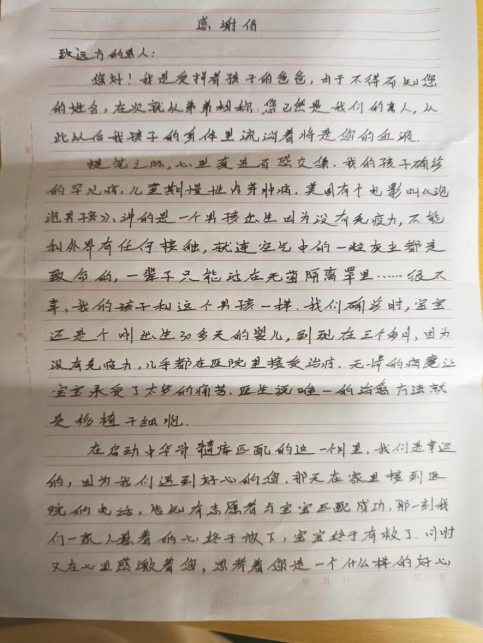 感谢信
致远方的恩人：
您好！我是受捐者孩子的爸爸，由于不得而知您
的姓名，在次就以弟弟相称.您已然是我们的亲人，从
此以后我孩子的身体里流淌着将是您的血液.
提笔之际，心里真是百感交集.我的孩子确诊
的罕见病，儿童期慢性肉芽肿病.美国有个电影叫《泡
泡男孩》，讲的是一个男孩出生因为没有免疫力，不能
和外界有任何接触，就连空气中的一粒灰尘都是
致命的，一辈子只能活在无菌隔离罩里……很不
幸，我的孩子和这个男孩一样.我们确诊时，宝宝
还是个刚出生30多天的婴儿，到现在三个多月，因为
没有免疫力，几乎都在医院里接受治疗.无情的病魔让
宝宝承受了太多的痛苦.医生说唯一的治愈方法就
是移植干细胞.
在启动中华骨髓库匹配的这一个月里，我们是幸运
的，因为我们遇到好心的您.那天在家里接到医
院的电话，告知有志愿者与宝宝匹配成功.那一刻我
们一家人悬着的心终于放下，宝宝终于有救了.同时
又在心里感激着您，思考着您是一个什么样的好心
年 月 日